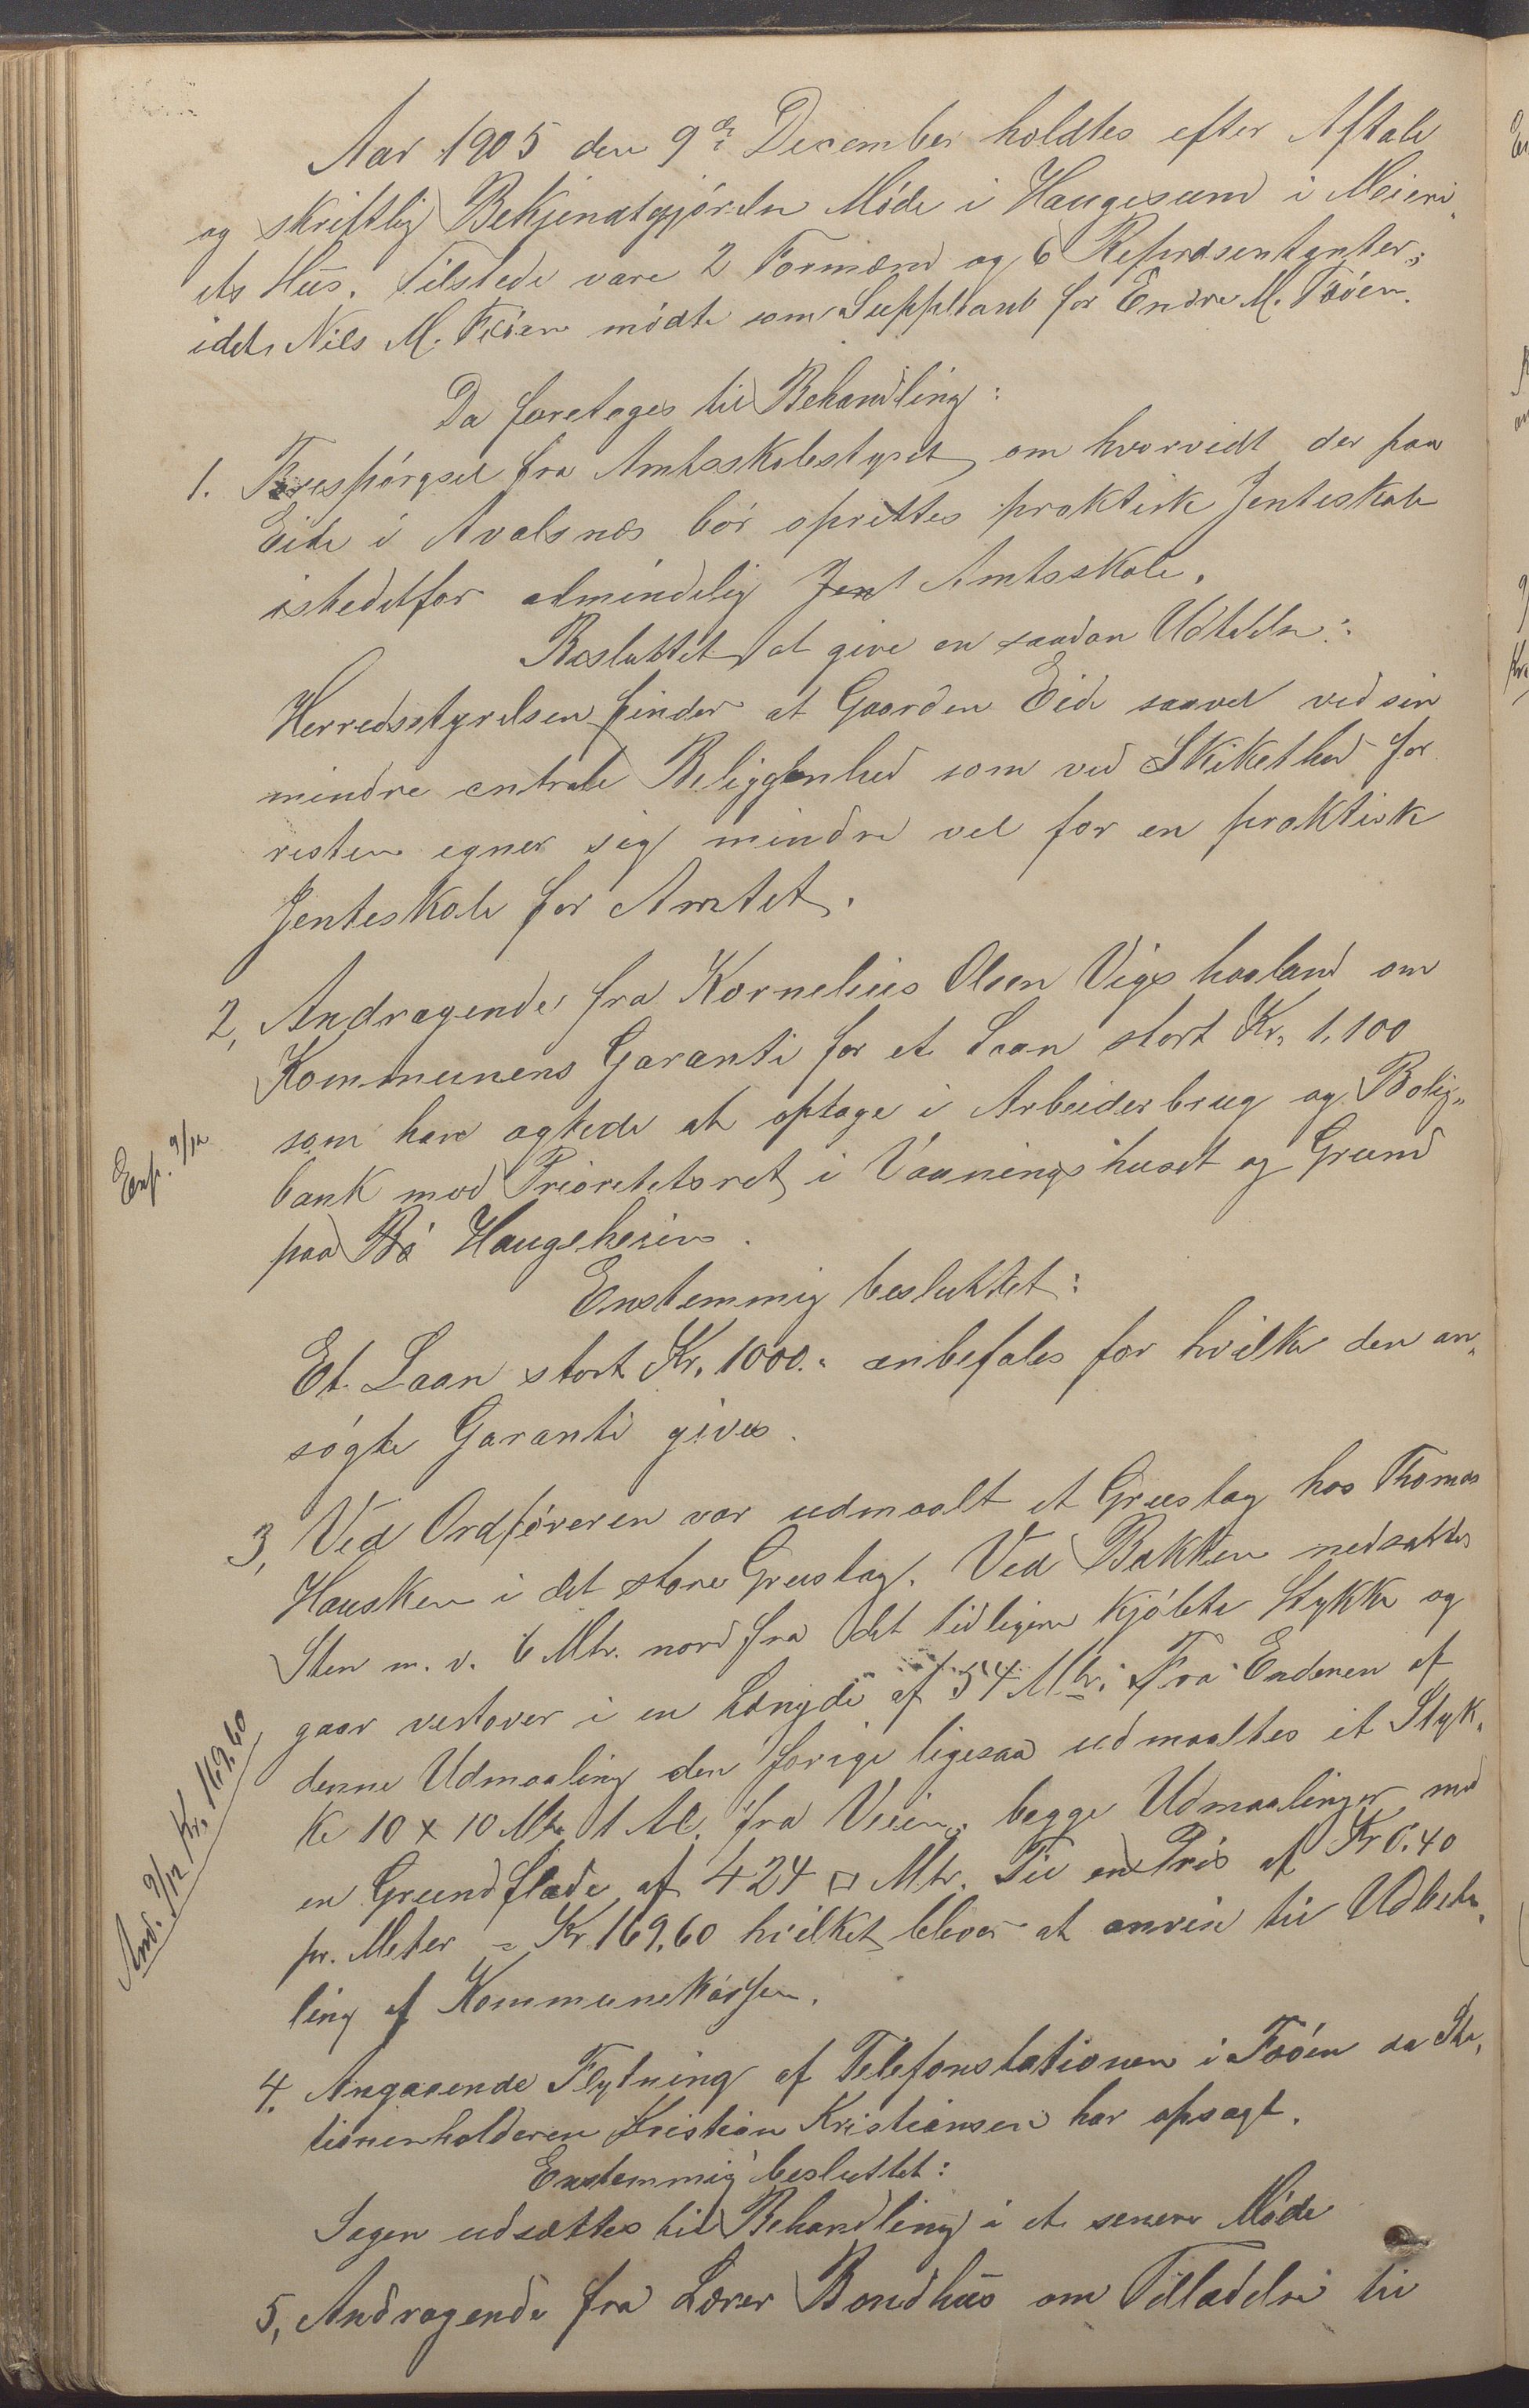 Aar 1905 den 9de December holdtes efter Aftale
og skriftlig Bekjendtgjórelse Móde i Haugesund i Meieri„
ets Hus. Tilstede vare 2 Formænd og 6 Repræsentanter;
idet Nils M. Fóóen módte som Suppleant for Endre M. Fóóen.
Da foretoges til Behandling:
1. Forespórgsel fra Amtsskolestyret om hvorvidt der paa
Eide i Avalsnæs bór oprettes praktisk Jenteskole
istedetfor almindelig Jent Amtsskole.
Besluttet at give en saadan Udtalelse:
Herredsstyrelsen finder at Gaarden Eide saavel ved sin
mindre centrale Beliggenhed som ved Skikethed for
resten egner sig mindre vel for en praktisk
Jenteskole for Amtet.
2, Andragende fra Kornelius Olsen Vigshaaland om
Kommunens Garanti for et Laan stort Kr. 1,100
som han agtede at optage i Arbeiderbrug og Bolig„
bank mod Prioritetsret i Vaaningshuset og Grund
paa Bó Haugeheien.
Exp. 9/12
Enstemmig besluttet:
Et Laan stort Kr. 1000.„ anbefales for hvilke den an„
sógte Garanti gives.
3, Ved Ordfóreren var udmaalt et Grustag hos Thomas
Hausken i det store Grustag. Ved Bakken nedsattes
Sten m. v. 6 Mtr. nord fra det tidligere kjóbte Stykke og
gaar vestover i en Længde af 54 Mtr. Fra Enden af
denne Udmaaling den forige ligesaa udmaaltes et Styk„
ke 10 x 10 Mtr 1 Al. fra Veien, begge Udmaalinger med
en Grundflade af 424 □ Mtr. Til en Pris af Kr 0.40
pr. Meter = Kr 169,60 hvilket blever at anvise til Udbeta„
ling af Kommunekassen.
Anv. 9/12 Kr. 169,60
4. Angaaende Flytning af Telefonstationen i Fóóen da Sta„
tionsholderen Kristian Kristiansen har opsagt.
Enstemmig besluttet:
Sagen udsættes til Behandling i et senere Móde
5, Andragende fra Lærer Bondhus om Tilladelse til